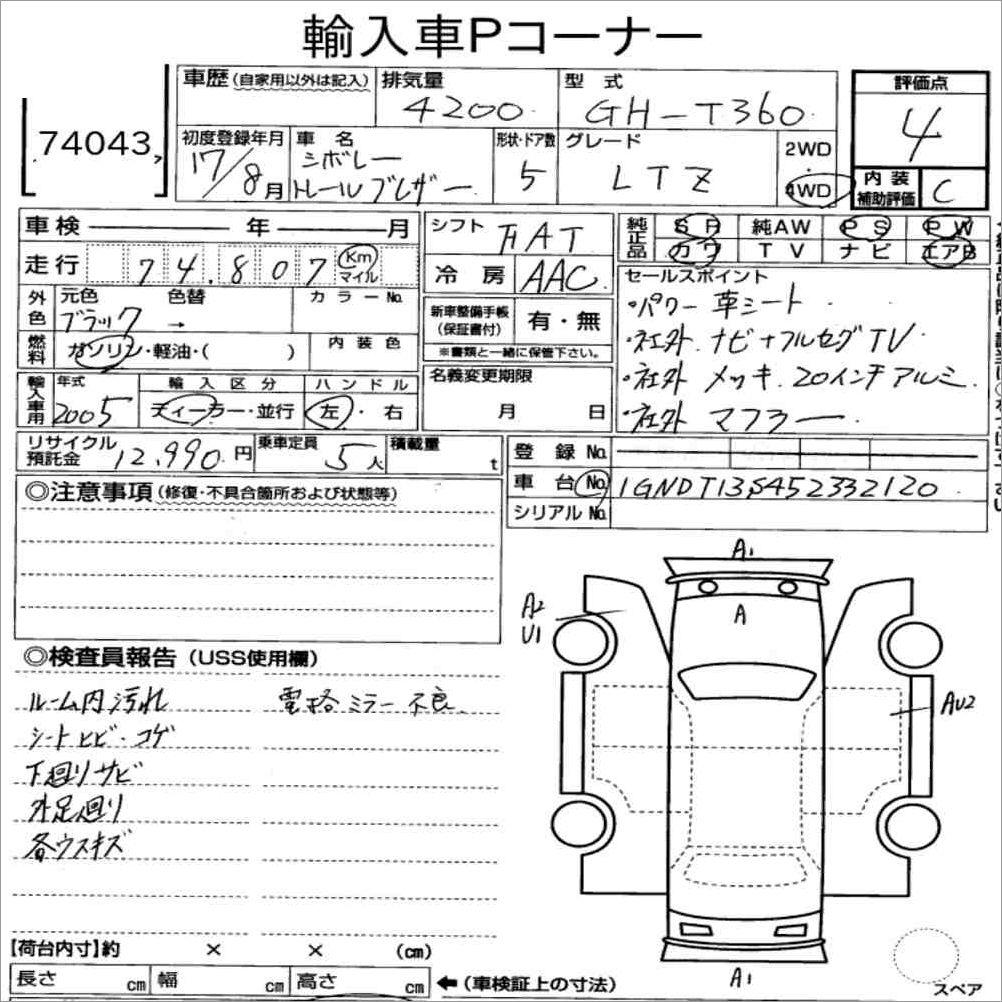 輸入車Pコーナー
74043
車歴(自家用以外は記入)
排気量 4200
型式 GH-T360
評価点 4
初度登録年月 17/8月
車名 シボレー トレールブレザー
形状・ドア数 5
グレード LTZ
2WD・4WD
内装補助評価 C
車検 年 月
シフト FAT
純正品 SR 純AW PS PW
カワ TV ナビ エアB
走行 74,807 Km マイル
冷房 AAC
セールスポイント
・パワー革シート
・社外ナビ+フルセグTV
・社外メッキ20インチアルミ
・社外マフラー
外色 元色 ブラック → 色替 カラーNo.
新車整備手帳(保証書付) 有・無
※書類と一緒に保管下さい。
燃料 ガソリン・軽油・( ) 内装色
輸入車用 年式 2005 輸入区分 ディーラー・並行 ハンドル 左・右
名義変更期限 月 日
リサイクル預託金 12,990円 乗車定員 5人 積載量 t
登録No.
車台No. 1GNDT13S452332120
シリアルNo.
◎注意事項(修復・不具合箇所および状態等)
◎検査員報告(USS使用欄)
ルーム内汚れ 電格ミラー不良
シートヒビ・コゲ
下廻りサビ
外足廻り
各ウスキズ
A1
A
A2
U1
AU2
A1
スペア
【荷台内寸】約 × × (cm)
長さ cm 幅 cm 高さ cm ←(車検証上の寸法)